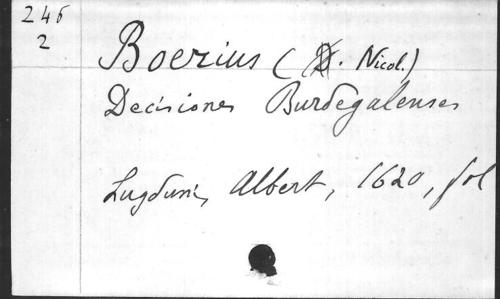 246
2
Boerius (D. Nicol.)
Decisiones Burdegalenses
Lugduni, Albert, 1620, fol